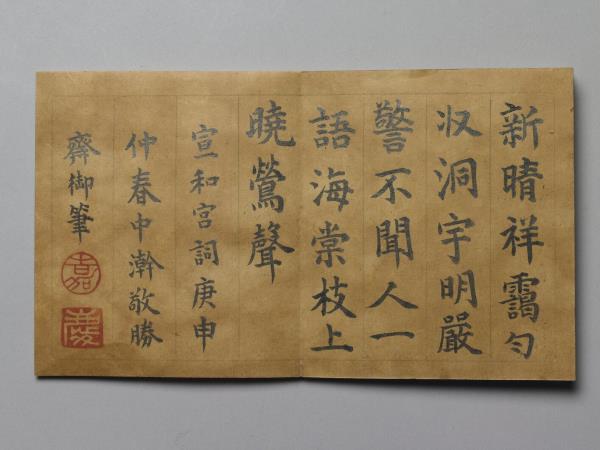 新晴祥靄勻
収洞宇明嚴
警不聞人一
語海棠枝上
曉鶯聲
宣和宮詞庚申
仲春中澣敬勝
齋御筆
嘉
慶